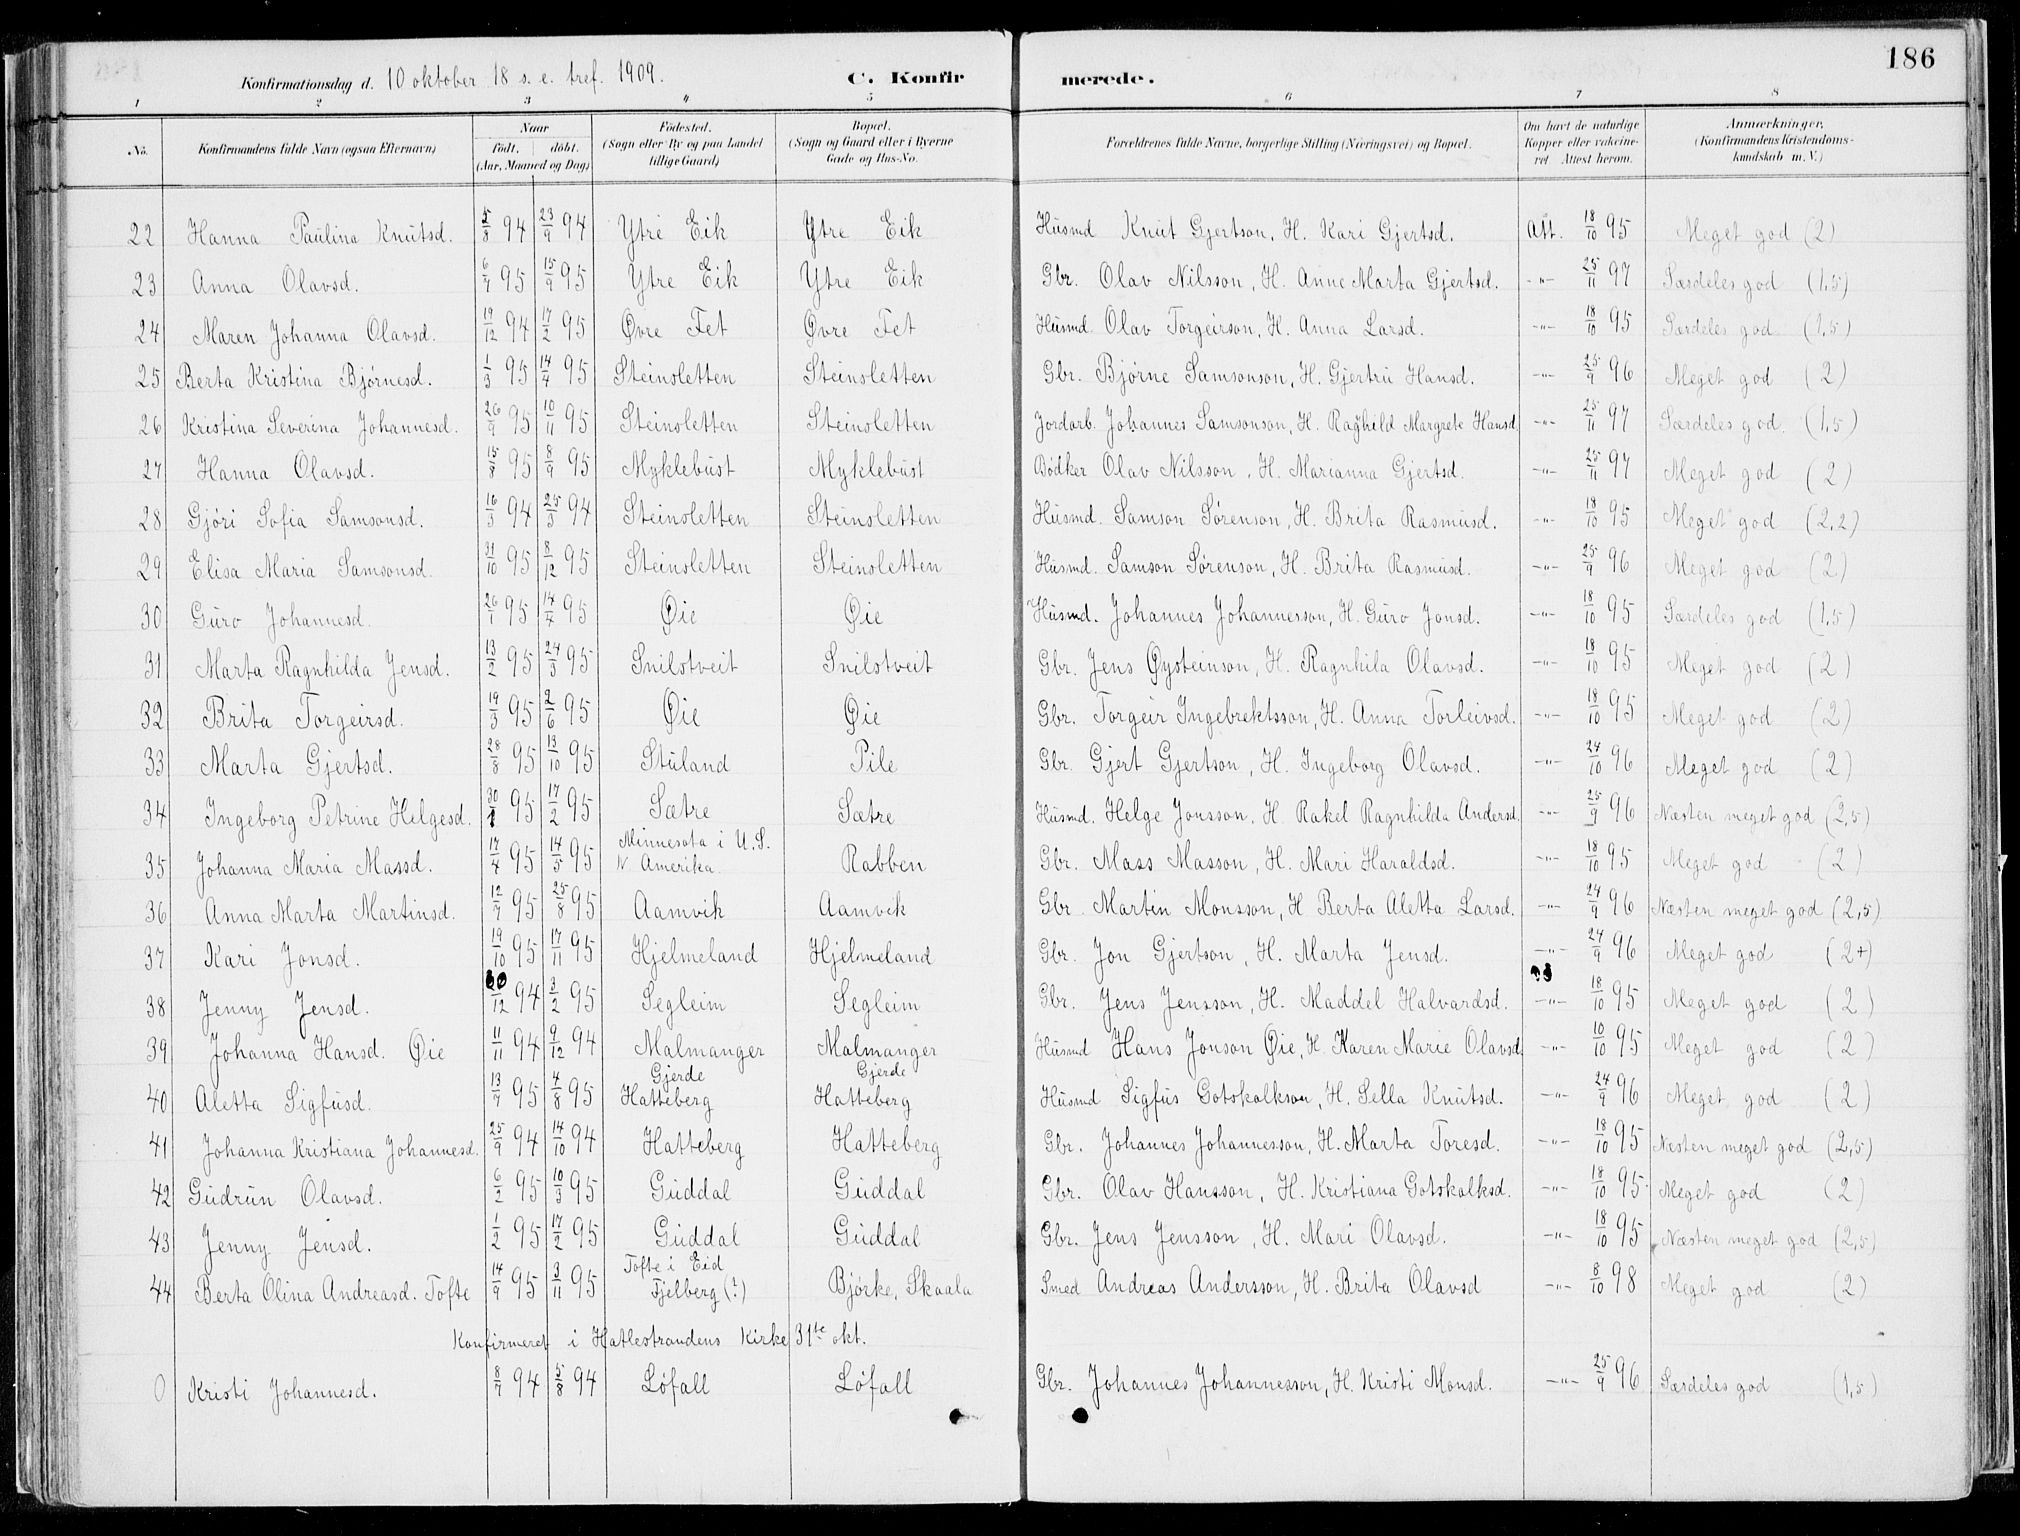 186
Konfirmationsdag d. 10 oktober 18 s. e. tref. 1909. C. Konfirmerede.
1 2 3 4 5 6 7 8
No. Konfirmandens fulde Navn (ogsaa Efternavn) Naar født. døbt. (Aar, Maaned og Dag) Fødested. (Sogn eller By og paa Landet tillige Gaard) Bopæl. (Sogn og Gaard eller i Byerne Gade og Hus-No. Forældrenes fulde Navne, borgerlige Stilling (Næringsvei) og Bopæl. Om havt de naturlige Kopper eller vakcineret Attest herom. Anmærkninger. (Konfirmandens Kristendomskundskab m. V.)
22 Hanna Paulina Knutsd. 5/8 94 23/9 94 Ytre Eik Ytre Eik Husmd Knut Gjertson, H. Kari Gjertsd. Att. 18/10 95 Meget god (2)
23 Anna Olavsd. 6/7 95 15/9 95 Ytre Eik Ytre Eik Gbr. Olav Nilsson, H. Anne Marta Gjertsd. -"- 25/11 97 Særdeles god (1,5)
24 Maren Johanna Olavsd. 19/12 94 17/2 95 Øvre Fet Øvre Fet Husmd. Olav Torgeirson, H. Anna Larsd. -"- 18/10 95 Særdeles god (1,5)
25 Berta Kristina Bjørnesd. 1/3 95 14/4 95 Steinsletten Steinsletten Gbr. Bjørne Samsonson, H. Gjertru Hansd. -"- 25/9 96 Meget god (2)
26 Kristina Severina Johannesd. 26/9 95 10/11 95 Steinsletten Steinsletten Jordarb. Johannes Samsonson, H. Raghild Margrete Hansd. -"- 25/11 97 Særdeles god. (1,5)
27 Hanna Olavsd. 15/8 95 8/9 95 Myklebust Myklebust Bødker Olav Nilsson, H. Marianna Gjertsd. -"- 25/11 97 Meget god (2)
28 Gjøri Sofia Samsonsd. 16/3 94 25/3 94 Steinsletten Steinsletten Husmd. Samson Sørenson, H. Brita Rasmusd. -"- 18/10 95 Meget god (2,2)
29 Elisa Maria Samsonsd. 31/10 95 8/12 95 Steinsletten Steinsletten Husmd. Samson Sørenson, H. Brita Rasmusd. -"- 25/9 96 Meget god (2)
30 Guro Johannesd. 26/1 95 14/4 95 Øie Øie Husmd. Johannes Johannesson, H. Guro Jonsd. -"- 18/10 95 Særdeles god (1,5)
31 Marta Ragnhilda Jensd. 13/2 95 24/3 95 Snilstveit Snilstveit Gbr. Jens Øysteinson, H. Ragnhila Olavsd. -"- 18/10 95 Meget god (2)
32 Brita Torgeirsd. 19/3 95 2/6 95 Øie Øie Gbr. Torgeir Ingebrektsson, H. Anna Torleivsd. -"- 18/10 95 Meget god (2)
33 Marta Gjertsd. 28/8 95 13/10 95 Stuland Pile Gbr. Gjert Gjertson, H. Ingeborg Olavsd. -"- 24/10 96 Meget god (2)
34 Ingeborg Petrine Helgesd. 30/1 95 17/2 95 Sætre Sætre Husmd. Helge Jonsson, H. Rakel Ragnhilda Andersd. -"- 25/9 96 Næsten meget god (2,5)
35 Johanna Maria Massd. 17/4 95 14/5 95 Minnesota i U.S. N Amerika Rabben Gbr. Mass Masson, H. Mari Haraldsd. -"- 18/10 95 Meget god (2)
36 Anna Marta Martinsd. 12/7 95 25/8 95 Aamvik Aamvik Gbr. Martin Monsson, H Berta Aletta Larsd. -"- 24/9 96 Næsten meget god (2,5)
37 Kari Jonsd. 19/10 95 17/11 95 Hjelmeland Hjelmeland Gbr. Jon Gjertson, H. Marta Jensd. -"- 24/9 96 Meget god (2+)
38 Jenny Jensd. 20/12 94 3/2 95 Segleim Segleim Gbr. Jens Jensson, H. Maddel Halvardsd. -"- 18/10 95 Meget god (2)
39 Johanna Hansd. Øie 11/11 94 9/12 94 Malmanger Malmanger Husmd Hans Jonson Øie, H. Karen Marie Olavsd. -"- 10/10 95 Meget god (2)
40 Aletta Sigfusd. 13/7 95 4/8 95 Gjerde Hatteberg Gjerde Hatteberg Husmd Sigfus Gotskalkson, H. Sella Knutsd. -"- 24/9 96 Meget god (2)
41 Johanna Kristiana Johannesd. 25/9 94 14/10 94 Hatteberg Hatteberg Gbr. Johannes Johannesson, H. Marta Toresd. -"- 18/10 95 Næsten meget god (2,5)
42 Gudrun Olavsd. 6/2 95 10/3 95 Guddal Guddal Gbr. Olav Hansson, H. Kristiana Gotskalksd. -"- 18/10 95 Meget god (2)
43 Jenny Jensd. 1/2 95 17/2 95 Guddal Guddal Gbr. Jens Jensson, H. Mari Olavsd. -"- 18/10 95 Næsten meget god (2,5)
44 Berta Olina Andreasd. Tofte 14/9 95 3/11 95 Tofte i Eid Fjelberg (?) Bjørke, Skaala Smed Andreas Andersson, H. Brita Olavsd -"- 8/10 98 Meget god (2)
Konfirmeret i Hatlestrandens Kirke 31te okt.
0 Kristi Johannesd. 8/7 94 5/8 94 Løfall Løfall Gbr. Johannes Johannesson, H. Kristi Monsd. -"- 25/9 96 Særdeles god (1,5)